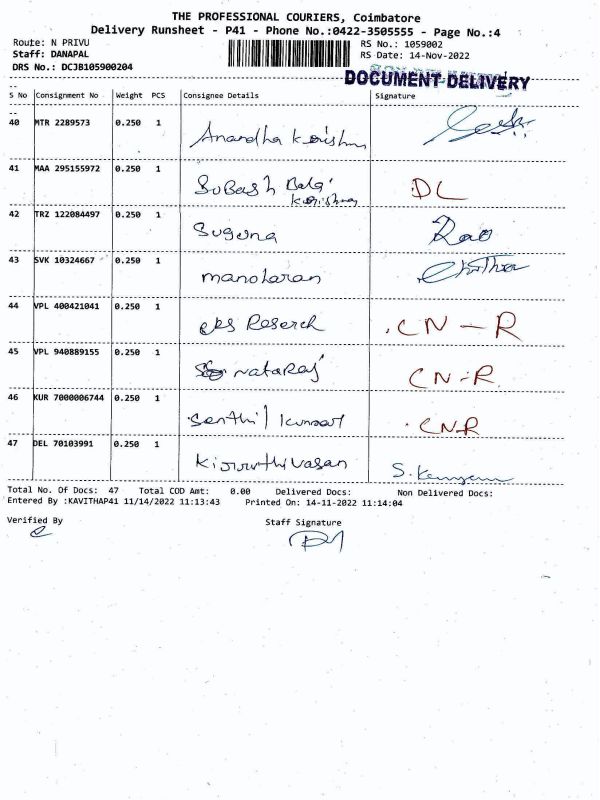 THE PROFESSIONAL COURIERS, Coimbatore
Delivery Runsheet - P41 - Phone No.:0422-3505555 - Page No.:4
Route: N PRIVU RS No.: 1059002
Staff: DANAPAL RS Date: 14-Nov-2022
DRS No.: DCJB105900204
DOCUMENT DELIVERY
S No Consignment No Weight PCS Consignee Details Signature
40 MTR 2289573 0.250 1 Anandha Krishn
41 MAA 295155972 0.250 1 SuBash Balaji Krishna DL
42 TRZ 122084497 0.250 1 Suguna Rao
43 SVK 10324667 0.250 1 manoharan Chithra
44 VPL 400421041 0.250 1 Reserch CN-R
45 VPL 940889155 0.250 1 nataraj CN-R
46 KUR 7000006744 0.250 1 Senthil kumar CNR
47 DEL 70103991 0.250 1 Kiruthivasan S.
Total No. Of Docs: 47 Total COD Amt: 0.00 Delivered Docs: Non Delivered Docs:
Entered By :KAVITHAP41 11/14/2022 11:13:43 Printed On: 14-11-2022 11:14:04
Verified By Staff Signature